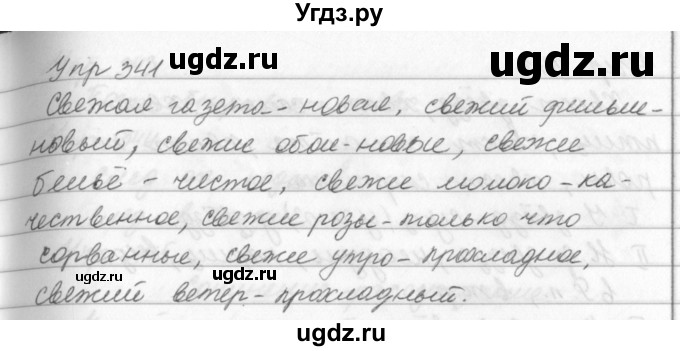 Угдз.ру
Упр 341
ugdz.ru
ugdz.ru
Свежая газета - новая, свежий фильм -
новый, свежие обои - новые, свежее
бельё - чистое, свежее молоко - ка-
ugdz.ru
чественное, свежие розы - только что
сорванные, свежее утро - прохладное,
ugdz.ru
ugdz.ru
свежий ветер - прохладный.
ugdz.ru